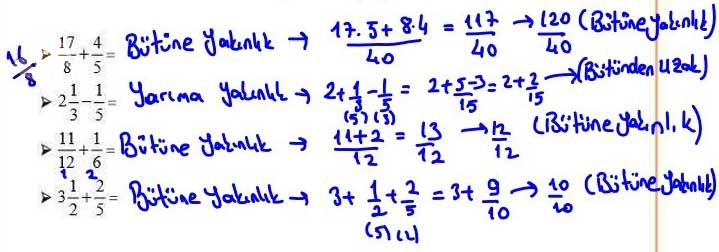 16/8 ➤ 17/8 + 4/5 = Bütüne Yakınlık → 17.5+8.4/40 = 117/40 → 120/40 (Bütüne yakınlık)
➤ 2 1/3 - 1/5 = Yarıma Yakınlık → 2+1/3-1/5 = 2+5-3/15 = 2+2/15 → (Bütünden uzak)
(5) (3)
➤ 11/12 + 1/6 = Bütüne Yakınlık → 11+2/12 = 13/12 → 12/12 (Bütüne yakınlık)
1 2
➤ 3 1/2 + 2/5 = Bütüne Yakınlık → 3+ 1/2 + 2/5 = 3+ 9/10 → 10/10 (Bütüne yakınlık)
(5) (2)